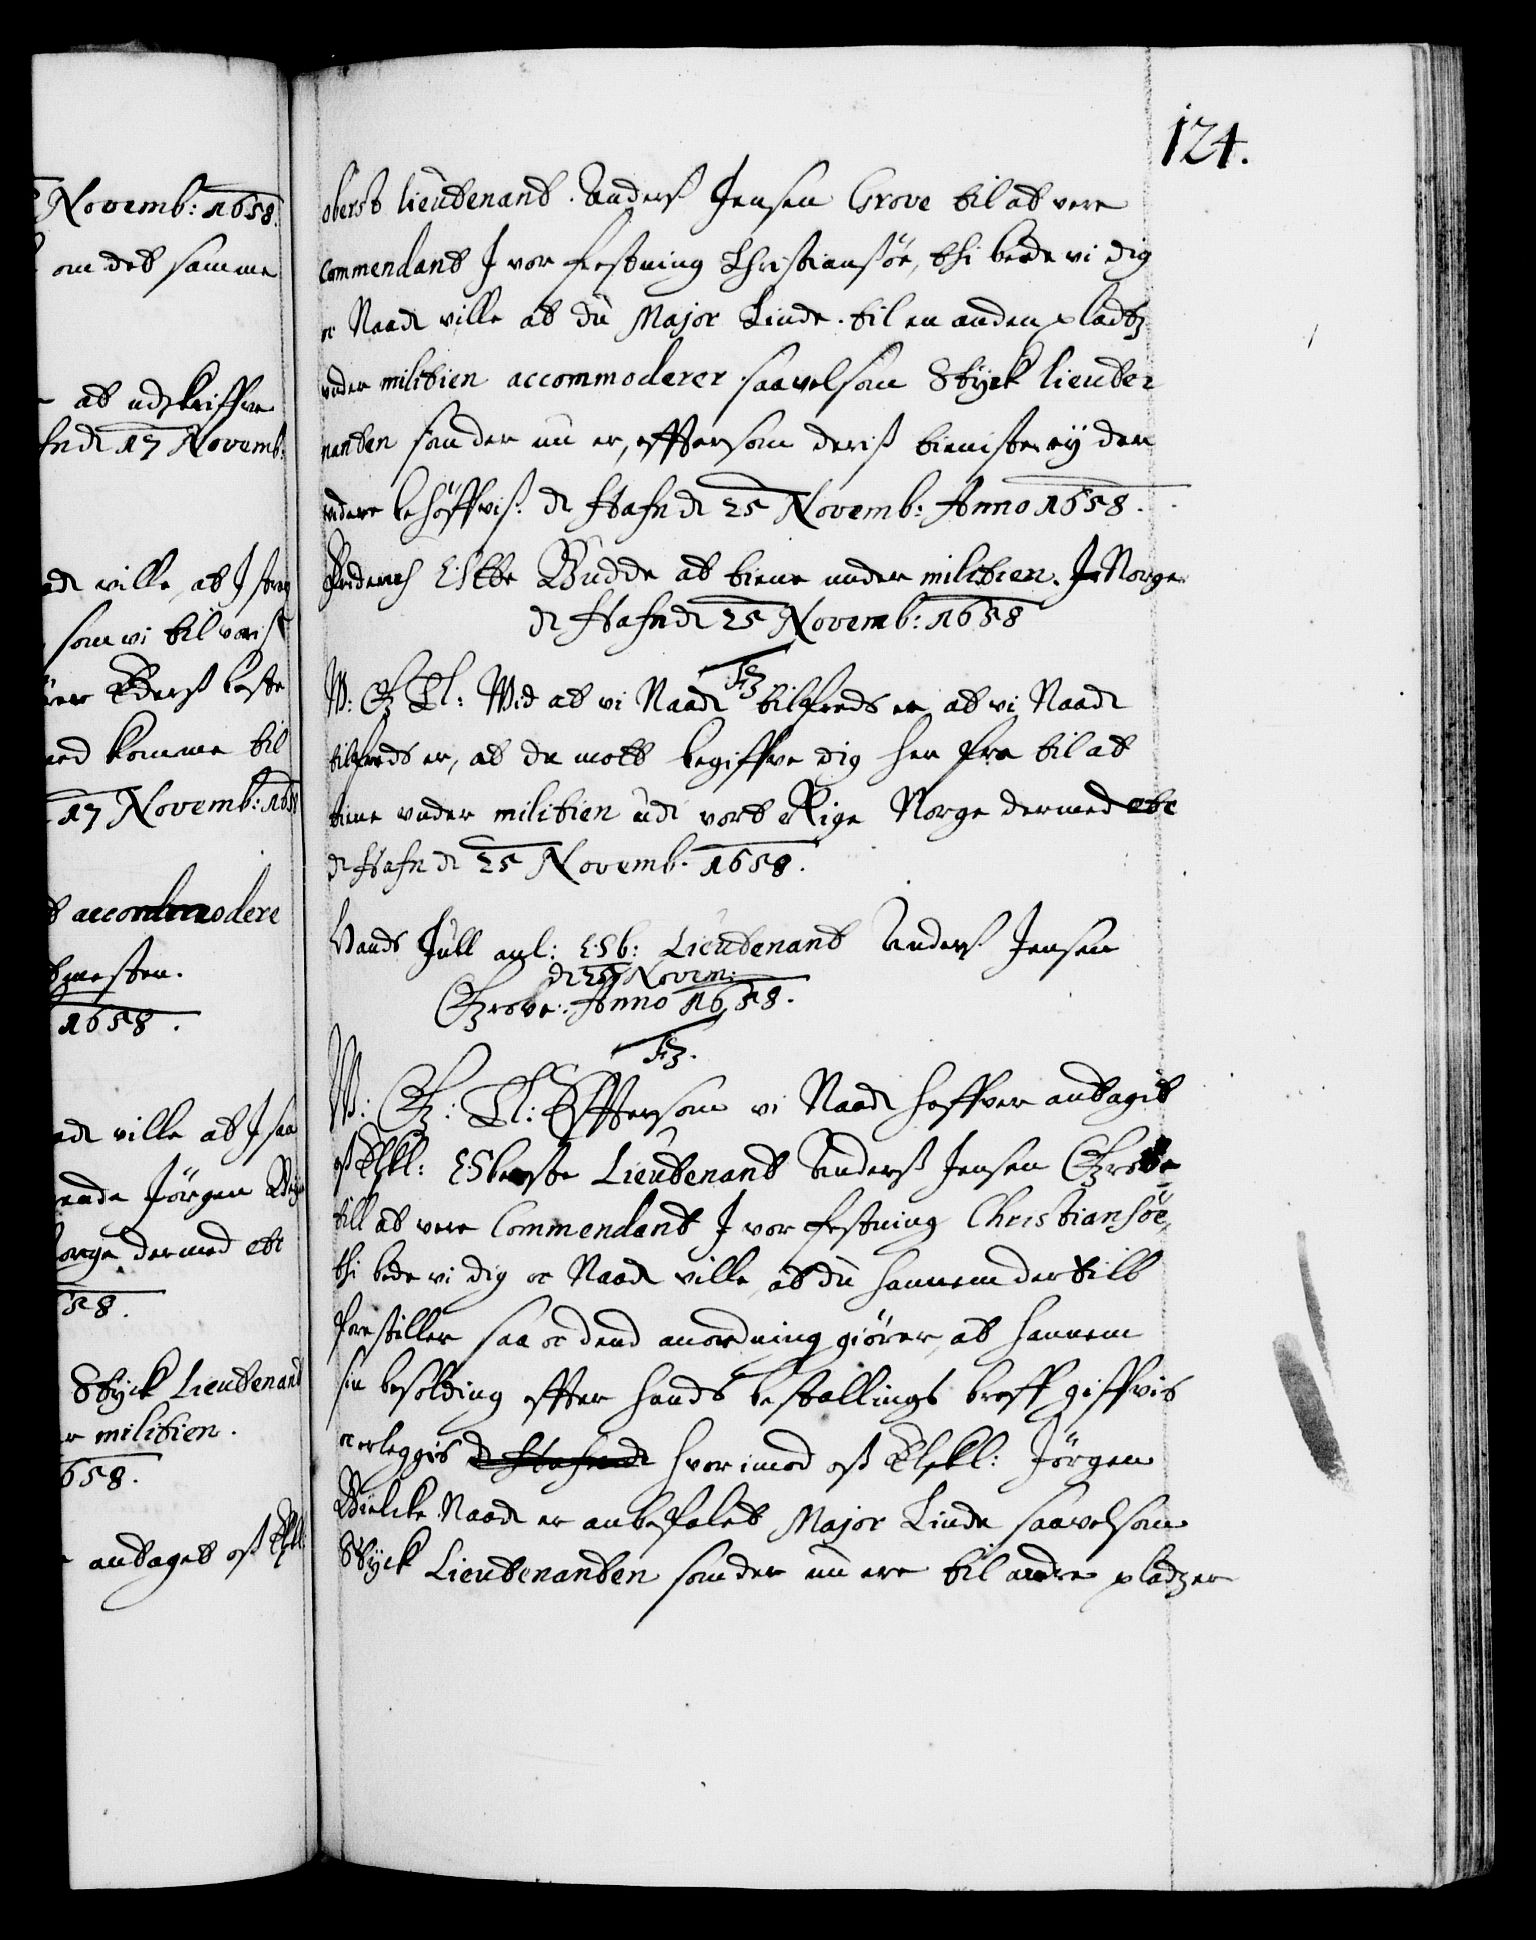 124.
Novemb: 1658.
om det samme
at udskriffve
Hafn den 17 Novemb:
ville, at I strax
som vi til voris
beste
komme til
17 Novemb: 1658
accommodere
1658.
ville at I saa
Jörgen
Norge dermed etc
Styck Lieutenant
militien.
1658.
antaget oß Elskl:
oberst lieutenant Anders Jensen Grove til at vere
commendant I vor festning Christiansöe, thi bede vi dig
oc Naadl ville at du Major Linde til en anden pladtz
under militien accommoderer saavelsom Styck lieute
nanten som der nu er, efftersom deris tieniste ej der
videre behöffvis. dl Hafn dl 25 Novemb: Anno 1658.
Friderich Budde at tiene under militien I Norge
dl Hafn dl 25 Novemb: 1658
F3
W: G T: Wid at vi Naadl tilfreds er at vi Naadl
tilfreds er, at du mott begiffve dig her fra til at
tiene under militien udi vort Rige Norge dermed etc
dl Hafn dl 25 Novemb. 1658.
Hands Jull anl: Ob: Lieutenant Anders Jensen
dl 25 Novem:
Grove: Anno 1658.
F3.
W: G: T: Efftersom vi Naadl haffver antagit
oß Elskl: Oberste Lieutenant Anders Jensen Grove
till at vere Commendant I vor festning Christiansöe,
thi bede vi dig oc Naadl ville, at du hannem der till
forestiller saa oc dend anordning giörer, at hannem
sin besolding effter hands bestallings breff giffvis
oc erleggis dl Hafn dl hvorimod oß Elskl: Jörgen
Bielcke Naadl er anbefalet Major Linde saavelsom
Styck Lieutenanten som der nu ere til andre pladzer